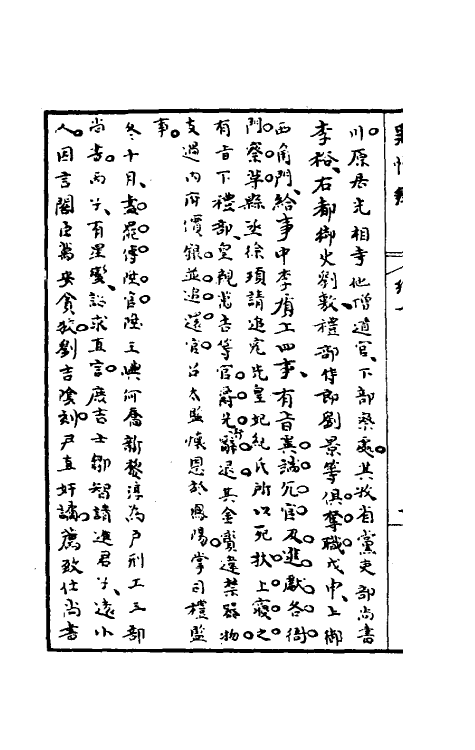 川原居光相寺他僧道官下部察處其放省黨吏部尚書
李裕右都御史劉敷禮部侍郎劉景等俱奪職戊申上御
西角門給事中李孜上四事有旨其論冗官及進獻各衙
門察革縣丞徐頊請追究先皇妃紀氏所以死狀上寢之
有旨下禮部皇親萬喜等官爵先辭退其金寶違禁器物
支過內府價銀並追還官召太監懷恩於鳳陽掌司禮監
事
冬十月盡罷傳陞官陞王輿何喬新黎淳為戶刑工三部
尚書丙子有星變詔求直言庶吉士鄒智請進君子遠小
人因言閣臣萬安貪狡劉吉陰刻尹直奸譎薦致仕尚書